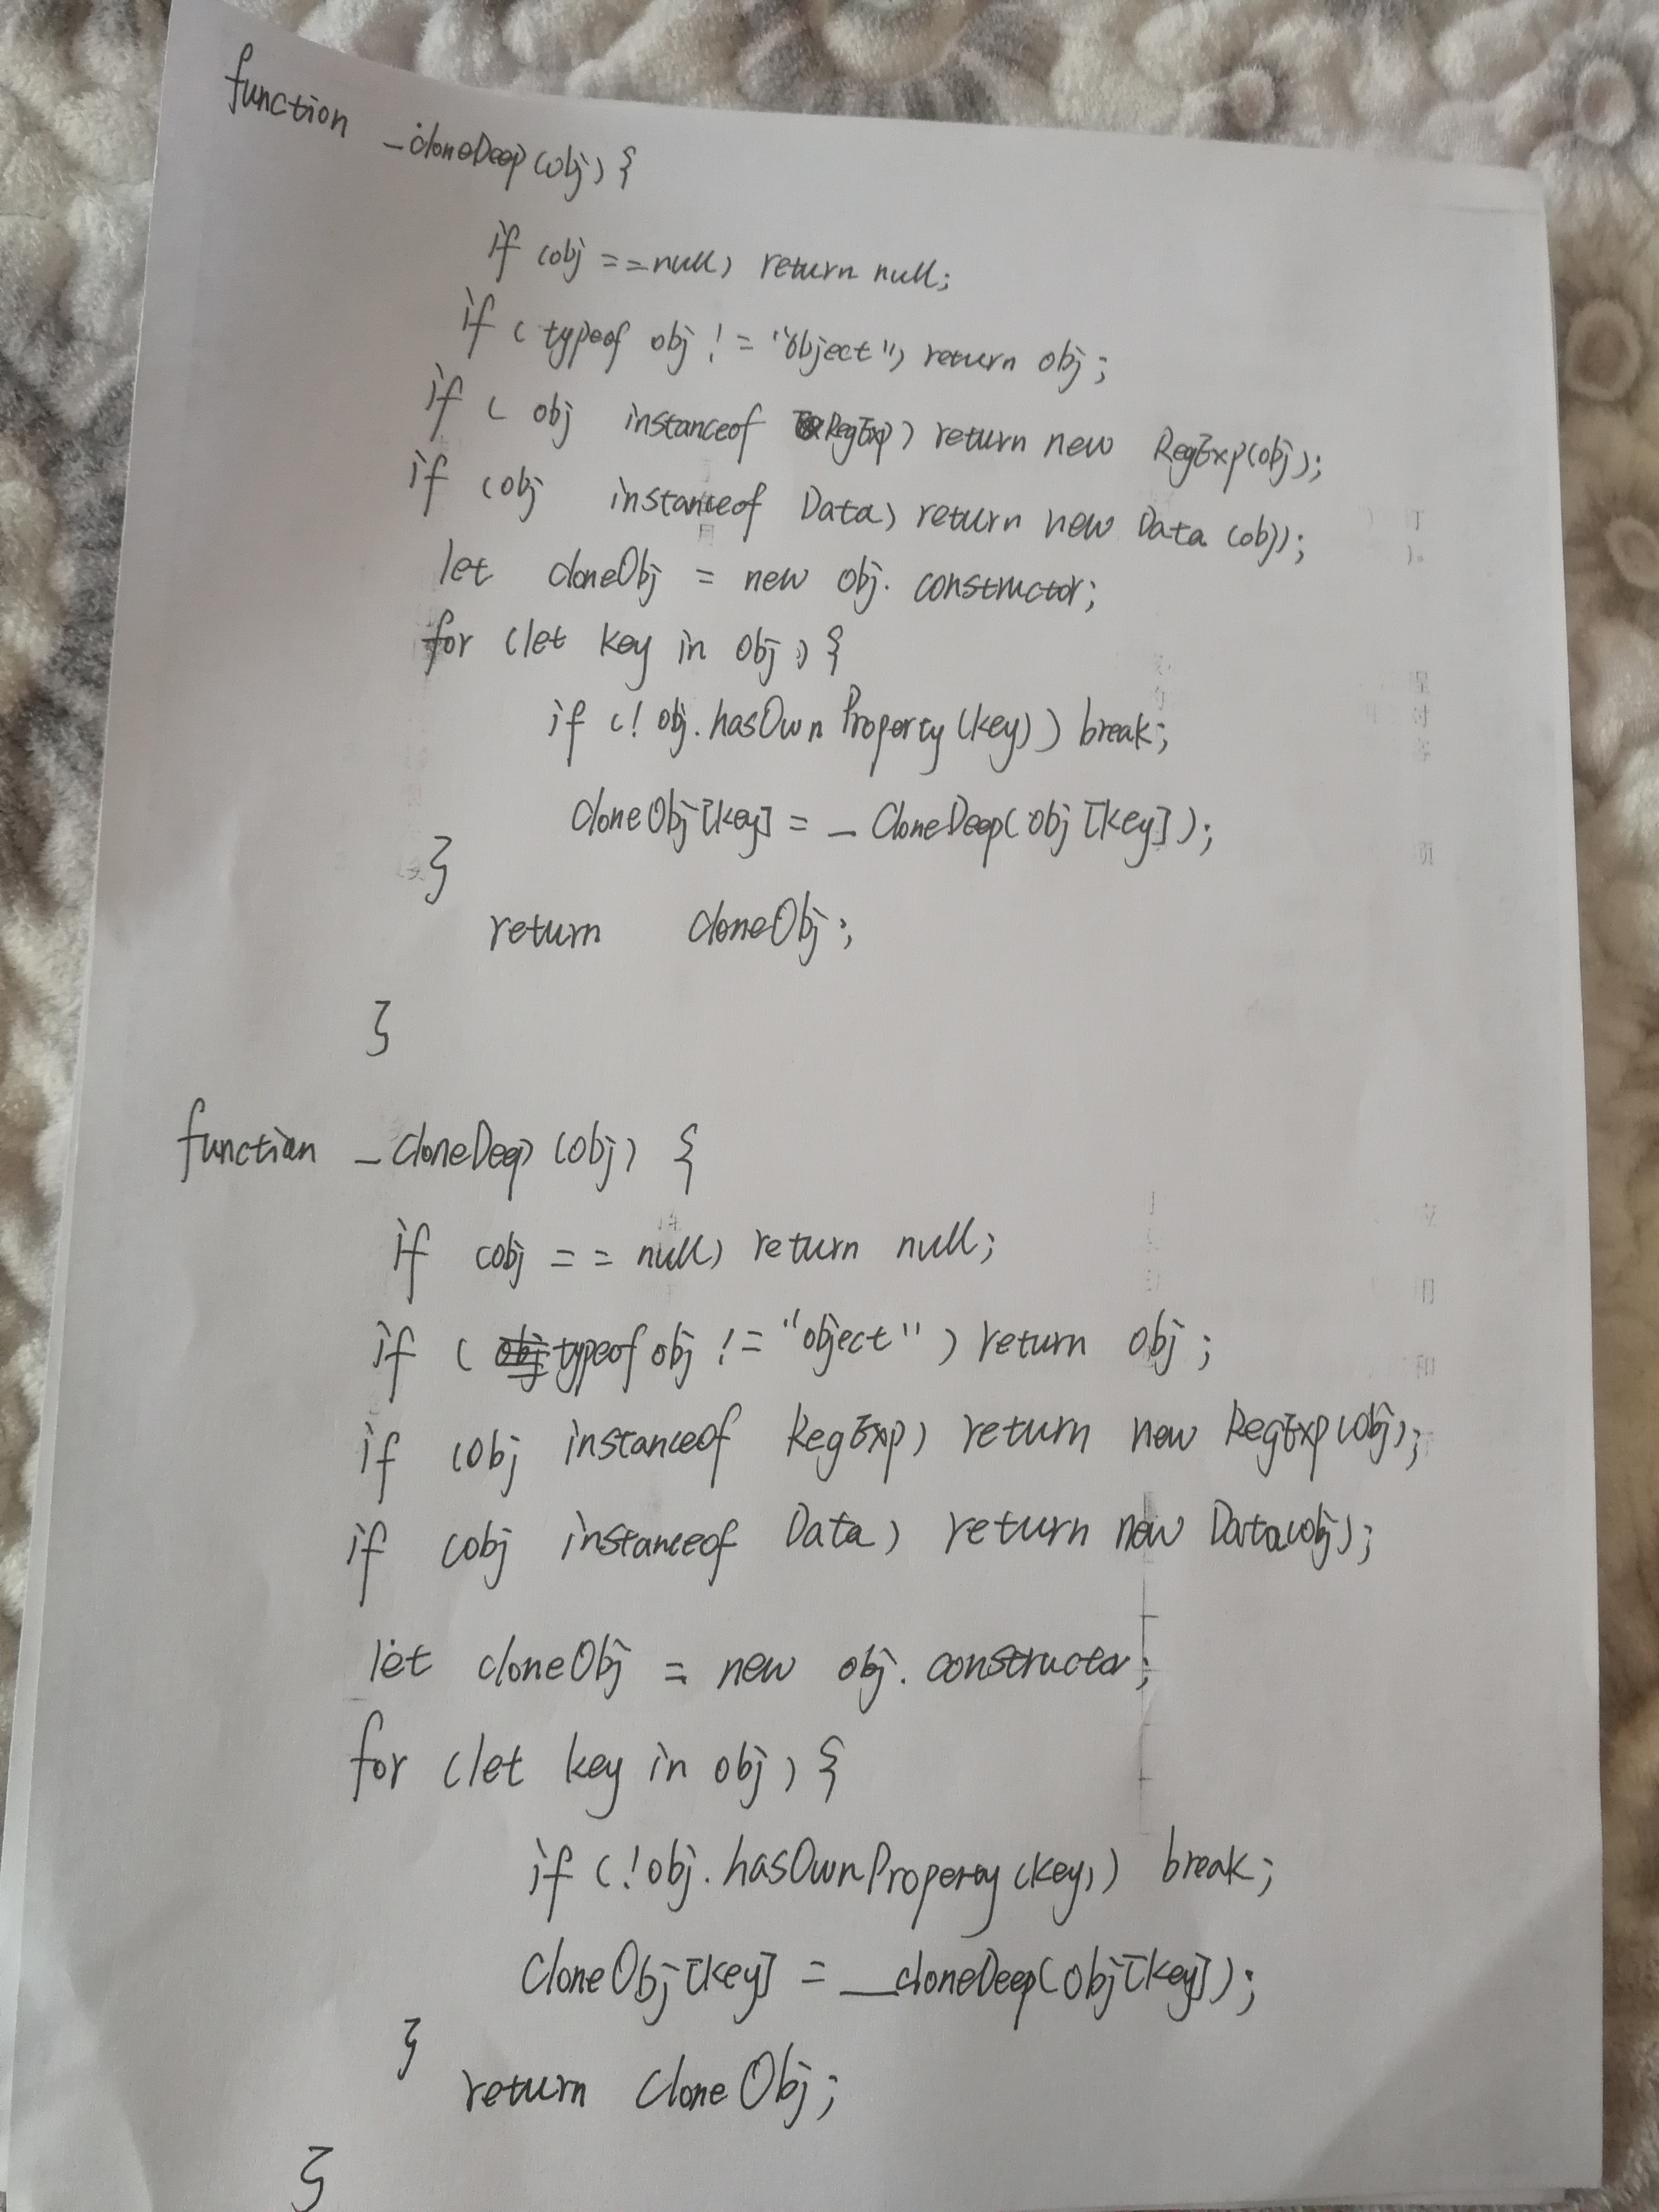 function _cloneDeep(obj) {
if (obj == null) return null;
if (typeof obj != "object") return obj;
if (obj instanceof RegExp) return new RegExp(obj);
if (obj instanceof Data) return new Data (obj);
let cloneObj = new obj.constructor;
for (let key in obj) {
if (! obj.hasOwnProperty(key)) break;
cloneObj[key] = _CloneDeep(obj[key]);
}
return cloneObj;
}
function _cloneDeep (obj) {
if (obj == null) return null;
if (typeof obj != "object") return obj;
if (obj instanceof RegExp) return new RegExp(obj);
if (obj instanceof Data) return new Data(obj);
let cloneObj = new obj.constructor;
for (let key in obj) {
if (!obj.hasOwnProperty(key)) break;
cloneObj[key] = _cloneDeep(obj[key]);
}
return cloneObj;
}